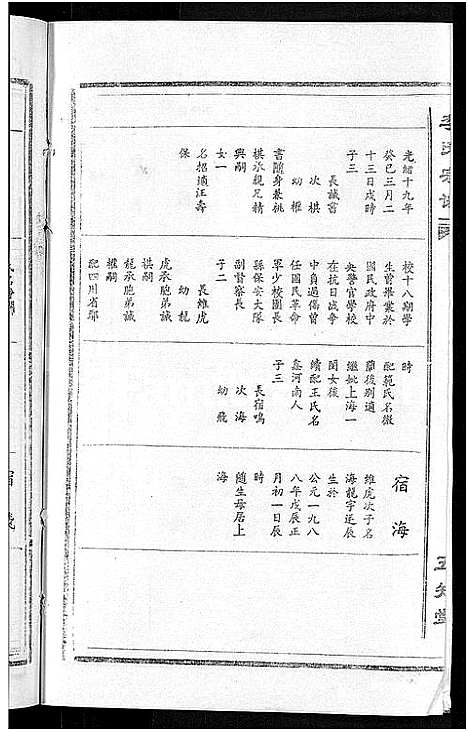 光緒十九年
癸巳三月二
十三日戌時
子三
長誠書
次棋
幼權
書隨身兼祧
棋承親兄精
與嗣
女一
名招適汪壽
保
校十八期學
生曾畢業於
國民政府中
央警官學校
在抗日戰爭
中負過傷曾
任國民革命
軍少校團長
縣保安大隊
副督察長
子二
長維虎
幼龍
虎承胞弟誠
棋嗣
龍承胞弟誠
權嗣
配四川省鄒
時
配範氏名微
蘭後別適
繼妣上海一
閨女後
續配王氏名
鑫河南人
子三
長宿鳴
次海
幼飛
宿海
維虎次子名
海龍字逆辰
生於
公元一九八
八年戊辰正
月初一日辰
時
隨生母居上
海
五知堂